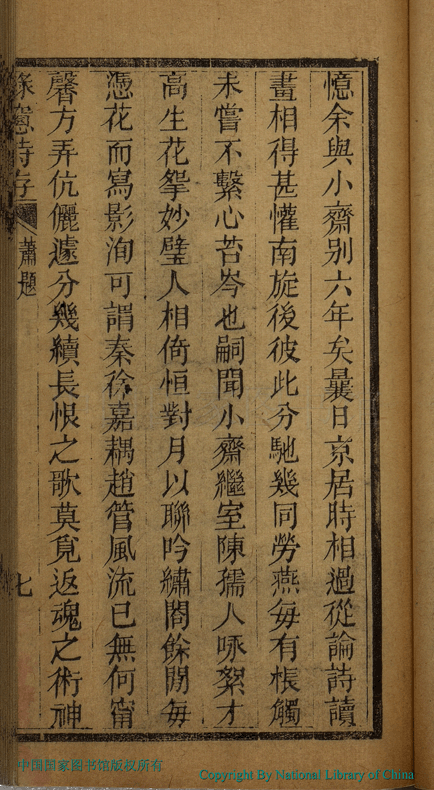 憶余與小齋別六年矣曩日京居時相過從論詩讀
畫相得甚懽南旋後彼此分馳幾同勞燕每有棖觸
未嘗不繫心苔岑也嗣聞小齋繼室陳孺人咏絮才
高生花筆妙璧人相倚恒對月以聯吟繡閣餘閒每
憑花而寫影洵可謂秦徐嘉耦趙管風流已無何甯
馨方弄伉儷遽分幾續長恨之歌莫覓返魂之術神
詩存
蕭題
七
中国国家图书馆版权所有
Copyright By National Library of China